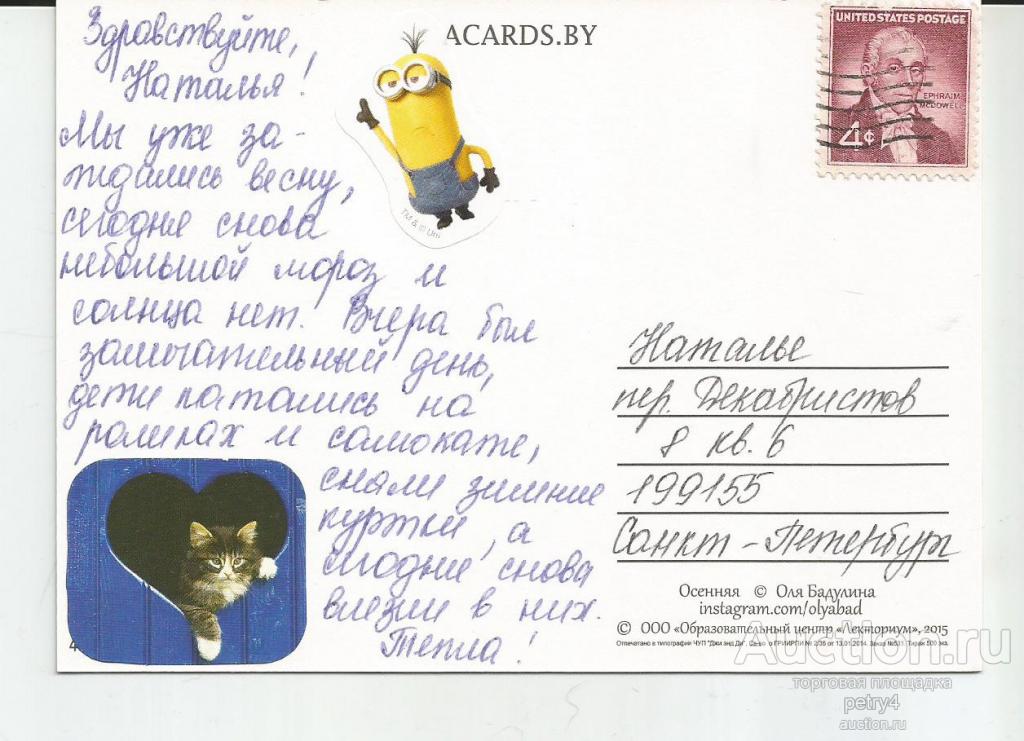 Здравствуйте,
Наталья!
Мы уже за-
ждались весну,
сегодня снова
небольшой мороз и
солнца нет. Вчера был
замечательный день,
дети катались на
роликах и самокате,
сняли зимние
куртки, а
сегодня снова
влезли в них.
Тепла!
ACARDS.BY
TM & © Uni
UNITED STATES POSTAGE
EPHRAIM
McDOWELL
4¢
Наталье
пер. Декабристов
8 кв. 6
199155
Санкт-Петербург
Осенняя © Оля Бадулина
instagram.com/olyabad
© ООО «Образовательный центр «Лекториум», 2015
Отпечатано в типографии ЧУП "Джи энд Ди". 13.01.2014. Тираж 500 экз.
4
Auction.ru
торговая площадка
petry4
auction.ru